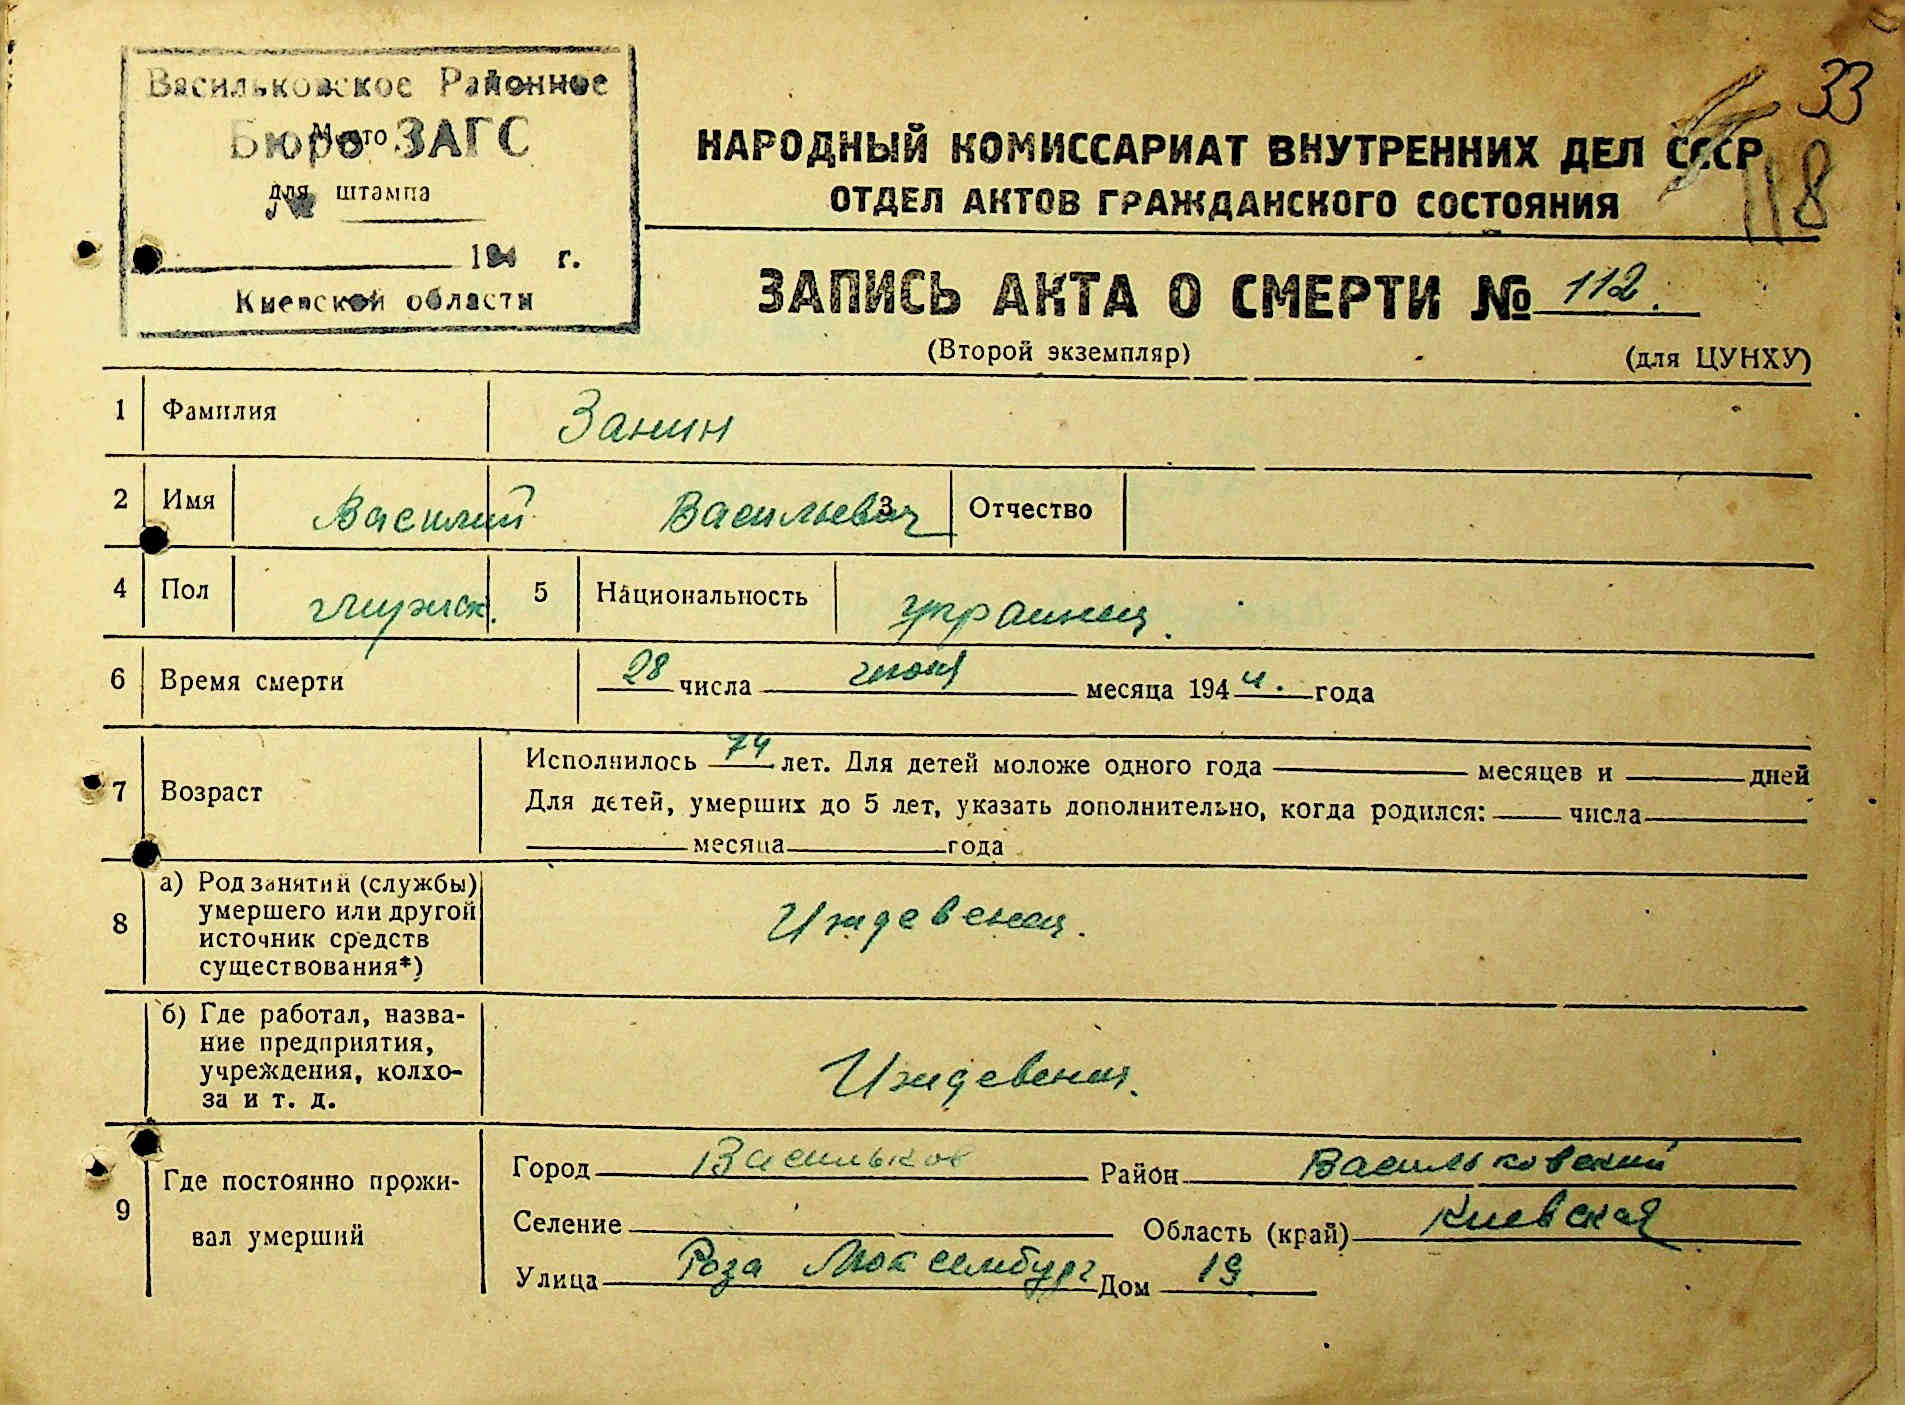 Васильковское Районное
Бюро ЗАГС
Место
для штампа
№
194 г.
Киевской области
33
118
НАРОДНЫЙ КОМИССАРИАТ ВНУТРЕННИХ ДЕЛ СССР
ОТДЕЛ АКТОВ ГРАЖДАНСКОГО СОСТОЯНИЯ
ЗАПИСЬ АКТА О СМЕРТИ № 112.
(Второй экземпляр) (для ЦУНХУ)
1 Фамилия Занин
2 Имя Василий Васильевич 3 Отчество
4 Пол мужск. 5 Национальность украинец.
6 Время смерти 28 числа июля месяца 1944. года
7 Возраст Исполнилось 74 лет. Для детей моложе одного года месяцев и дней
Для детей, умерших до 5 лет, указать дополнительно, когда родился: числа
месяца года
8 а) Род занятий (службы)
умершего или другой
источник средств
существования*)
Иждевенец.
б) Где работал, назва-
ние предприятия,
учреждения, колхо-
за и т. д.
Иждевенец.
9 Где постоянно прожи-
вал умерший
Город Васильков Район Васильковский
Селение Область (край) Киевская
Улица Роза Люксембург Дом 19.